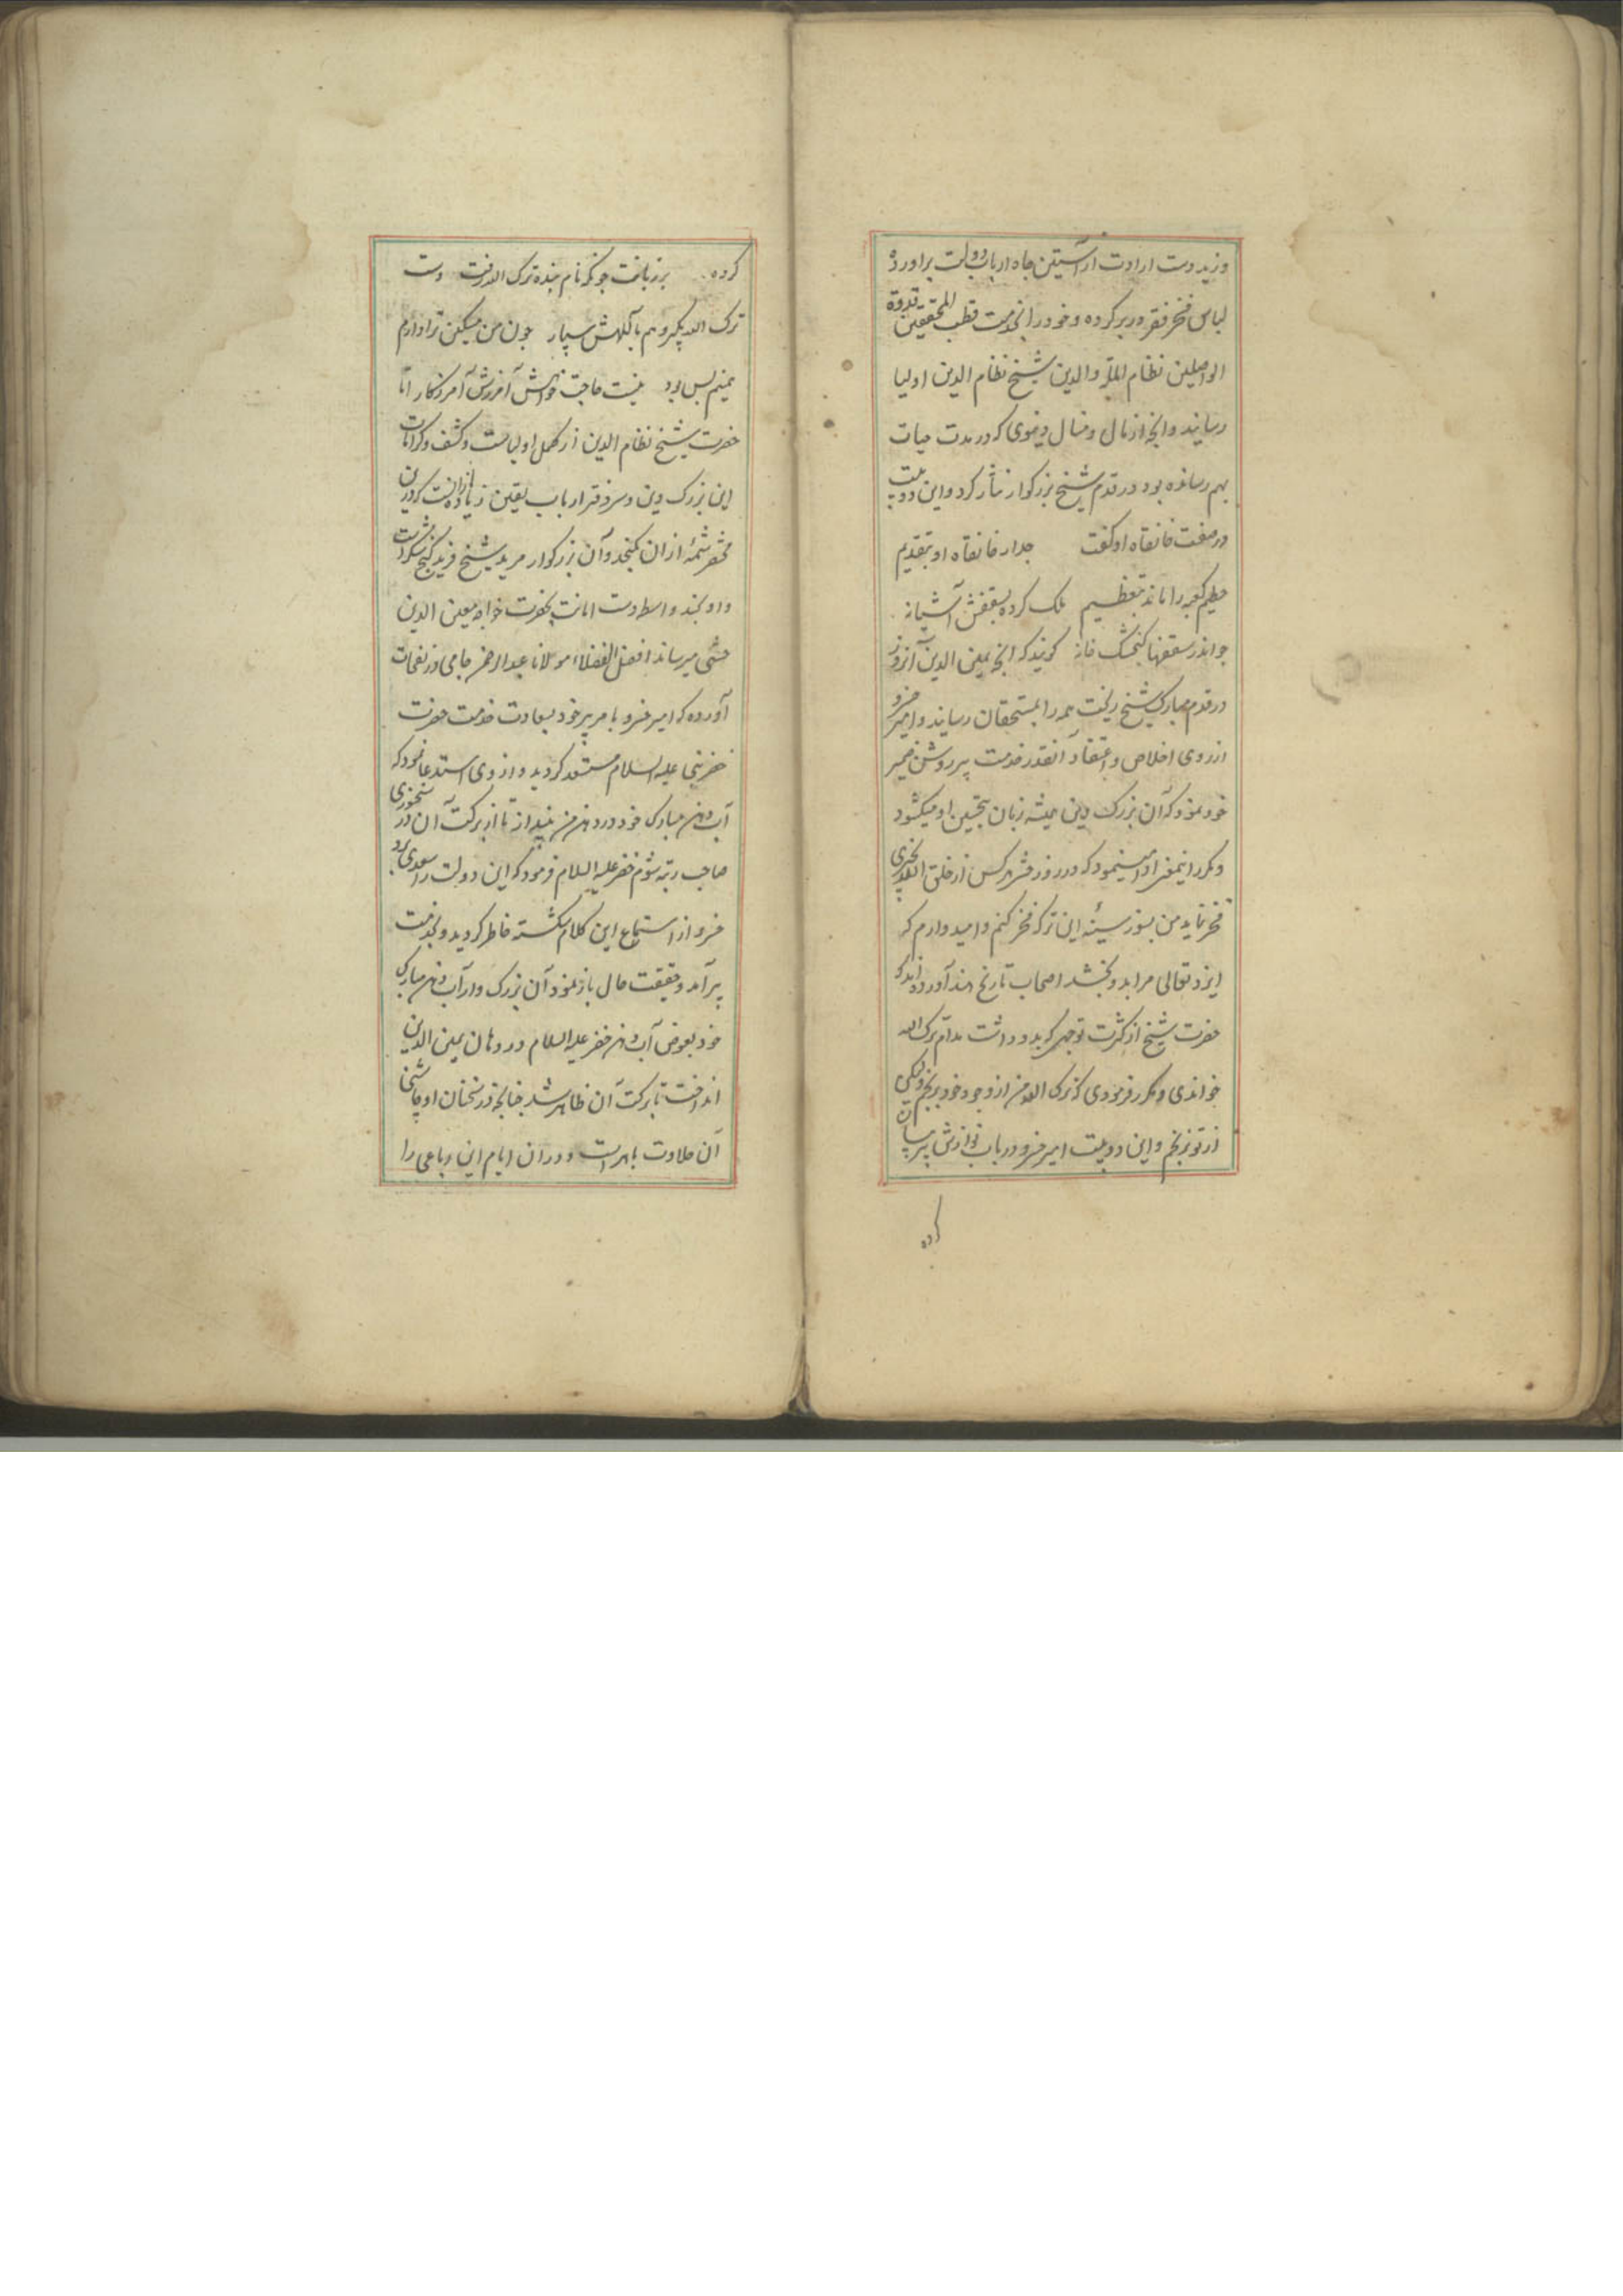 وزید دست ارادت از آستین جاه ارباب دولت برآورده
لباس فخر فقر دربر کرده و خود را بخدمت قطب المحققین قدوة
الواصلین نظام الملة والدین شیخ نظام الدین اولیا
رسانید و آنچه از مال و منال دنیوی که در مدت حیات
بهم رسانده بود در قدم شیخ بزرکوار نثار کرد و این دو بیت
در صفت خانقاه او کفت جدار خانقاه او بتقدیم
حطیم کعبه را ماند بتعظیم ملک کرده بسقفش آشیانه
جو اندر سقفها کنجشک خانه کویند که آنچه یمین الدین آنروز
در قدم مبارک شیخ ریخت همه را بمستحقان رسانید و امیر خسرو
از روی اخلاص و اعتقاد آنقدر خدمت پیر روشن ضمیر
خود نمود که آن بزرک دین همیشه زبان بتحسین او میکشود
و مکرر اینمعنی ادا مینمود که در روز حشر هر کس از خلق الله بچیزی
فخر نماید من بسوز سینه این ترک فخر کنم و امیدوارم که
ایزد تعالی مرا بدو بخشد اصحاب تاریخ هند آورده اند که
حضرت شیخ از کثرت توجهی که بدو داشت مدام ترک الله
خواندی و مکرر فرمودی که ترک الله من از وجود خود برنجم ولیکن
از تو نرنجم و این دو بیت امیر خسرو در باب نوازش پیر بیان
کرده
کرده برزبانت جو نکر نام بنده ترک الله رفت دست
ترک الله بکیر و هم باللهش سپار جون من مسکین ترا دارم
همینم بس بود نیست حاجت خواهش آمرزش آمرزکار اما
حضرت شیخ نظام الدین از کمل اولیاست و کشف و کرامات
این بزرک دین و سردفتر ارباب یقین زیاده از انست که درین
مختصر شمهٔ از ان کنجد و آن بزرکوار مرید شیخ فرید کنج شکر است
و او بچند واسطه دست انابت بحضرت خواجه معین الدین
چشتی میرساند افضل الفضلاء مولانا عبدالرحمن جامی در نفحات
آورده که امیر خسرو با مر پیر خود بسعادت خدمت حضرت
خضر نبی علیه السلام مستسعد کردید و از وی استدعا نمود که
آب دهن مبارک خود در دهن من بینداز تا از برکت آن در سخنوری
صاحب رتبه شوم خضر علیه السلام فرمود که این دولت را سعدی برد
خسرو از استماع این کلام شکسته خاطر کردید و بخدمت
پیر آمد و حقیقت حال باز نمود آن بزرک وار آب دهن مبارک
خود بعوض آب دهن خضر علیه السلام در دهان یمین الدین
انداخت تا برکت آن ظاهر شد چنانچه در سخنان او چاشنی
آن حلاوت باهر است و در آن ایام این رباعی را